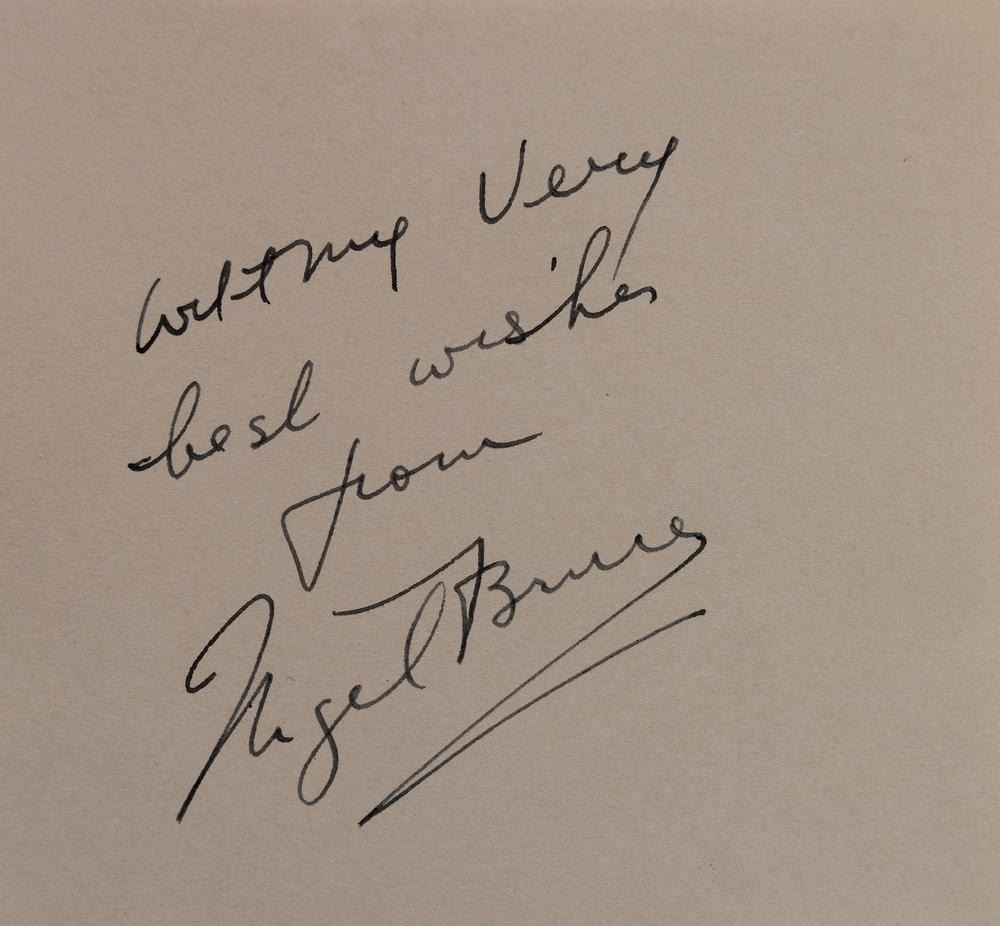 With my Very
best wishes
from
Nigel Bruce